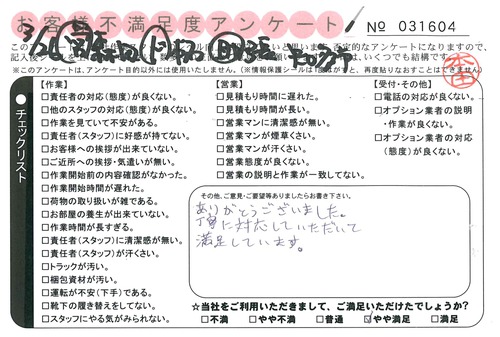 お客様不満足度アンケート
№ 031604
このアンケートは、アンケート目的以外には使用いたしません。(※情報保護シールは1度はがすと、再度貼りなおすことはできません)
チェックリスト
【作業】
□責任者の対応(態度)が良くない。
□他のスタッフの対応(態度)が良くない。
□作業を見ていて不安がある。
□責任者(スタッフ)に好感が持てない。
□お客様への挨拶が出来ていない。
□ご近所への挨拶・気遣いが無い。
□作業開始前の内容確認がなかった。
□作業開始時間が遅れた。
□荷物の取り扱いが雑である。
□お部屋の養生が出来ていない。
□作業時間が長すぎる。
□責任者(スタッフ)に清潔感が無い。
□責任者(スタッフ)が汗くさい。
□トラックが汚い。
□梱包資材が汚い。
□運転が不安(下手)である。
□靴下の履き替えをしてない。
□スタッフにやる気がみられない。
【営業】
□見積もり時間に遅れた。
□見積もり時間が長い。
□営業マンに清潔感が無い。
□営業マンが煙草くさい。
□営業マンが汗くさい。
□営業態度が良くない。
□営業の説明と作業が一致してない。
【受付・その他】
□電話の対応が良くない。
□オプション業者の説明・作業が良くない。
□オプション業者の対応(態度)が良くない。
その他、ご意見・ご要望等ありましたらお書き下さい。
ありがとうございました。
丁寧に対応していただいて
満足しています。
☆当社をご利用いただきまして、ご満足いただけたでしょうか?
□不満 □やや不満 □普通 ☑やや満足 □満足